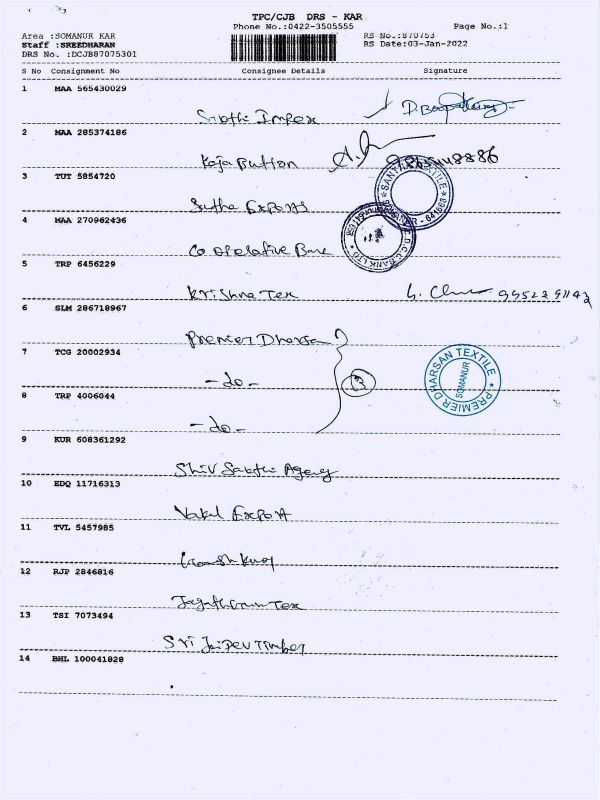 TPC/CJB DRS - KAR
Phone No.:0422-3505555 Page No.:1
Area :SOMANUR KAR RS No.:870753
Staff :SREEDHARAN RS Date:03-Jan-2022
DRS No. :DCJB87075301
S No Consignment No Consignee Details Signature
1 MAA 565430029
Impex
2 MAA 285374186
Koja Button
3 TUT 5854720
Exports
SANTHI TEXTILE
4 MAA 270962436
Co operative Bank
BANK LTD
5 TRP 6456229
Krishna Tex
6 SLM 286718967
Premier Dharsan
7 TCG 20002934
-do-
PREMIER DHARSAN TEXTILE
SOMANUR
8 TRP 4006044
-do-
9 KUR 608361292
Shiv Sakthi Agency
10 EDQ 11716313
Export
11 TVL 5457985
12 RJP 2846816
Tex
13 TSI 7073494
Sri Jai Dev Timber
14 BHL 100041828